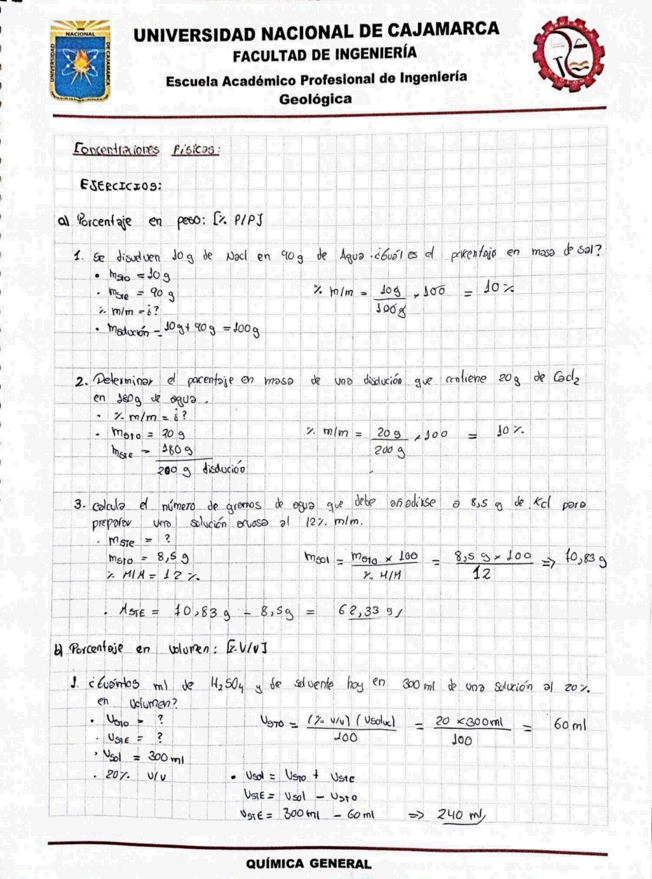 UNIVERSIDAD NACIONAL DE CAJAMARCA
FACULTAD DE INGENIERÍA
Escuela Académico Profesional de Ingeniería
Geológica
NACIONAL
UNIVERSIDAD
DE CAJAMARCA
Concentraciones Físicas:
EJERCICIOS:
a) Porcentaje en peso: [% P/P]
1. Se disuelven 10g de NaCl en 90g de Agua ¿Cuál es el porcentaje en masa de sal?
• msto = 10g
• mste = 90 g
% m/m = ¿?
• msolución = 10g + 90g = 100g
% m/m = 10g / 100g × 100 = 10%
2. Determinar el porcentaje en masa de una disolución que contiene 20g de CaCl2
en 180g de agua.
• % m/m = ¿?
• msto = 20 g
mste = 180 g
200 g disolución
% m/m = 20 g / 200 g × 100 = 10 %.
3. Calcula el número de gramos de agua que debe añadirse a 8,5 g de KCl para
preparar una solución acuosa al 12% m/m.
• mste = ?
msto = 8,5 g
% M/M = 12 %
msol = msto × 100 / % M/M = 8,5 g × 100 / 12 => 70,83 g
• MSTE = 70,83 g - 8,5g = 62,33 g
b) Porcentaje en volumen: [% V/V]
1. ¿Cuántos ml de H2SO4 y de solvente hay en 300 ml de una solución al 20%
en volumen?
• Vsto = ?
• VSTE = ?
• Vsol = 300 ml
• 20% V/V
VSTO = (% V/V) (Vsoluc) / 100 = 20 × 300ml / 100 = 60 ml
• Vsol = VSTO + Vste
VSTE = Vsol - VSTO
VSTE = 300 ml - 60 ml => 240 ml
QUÍMICA GENERAL